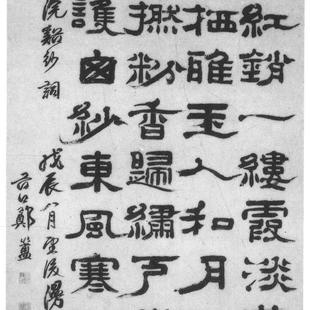 紅銷一縷霞淡
栖雅玉人和月
撚粉香歸繡戶
護囱紗東風寒
浣谿紗詞 戊辰八月望後漫
谷口鄭簠